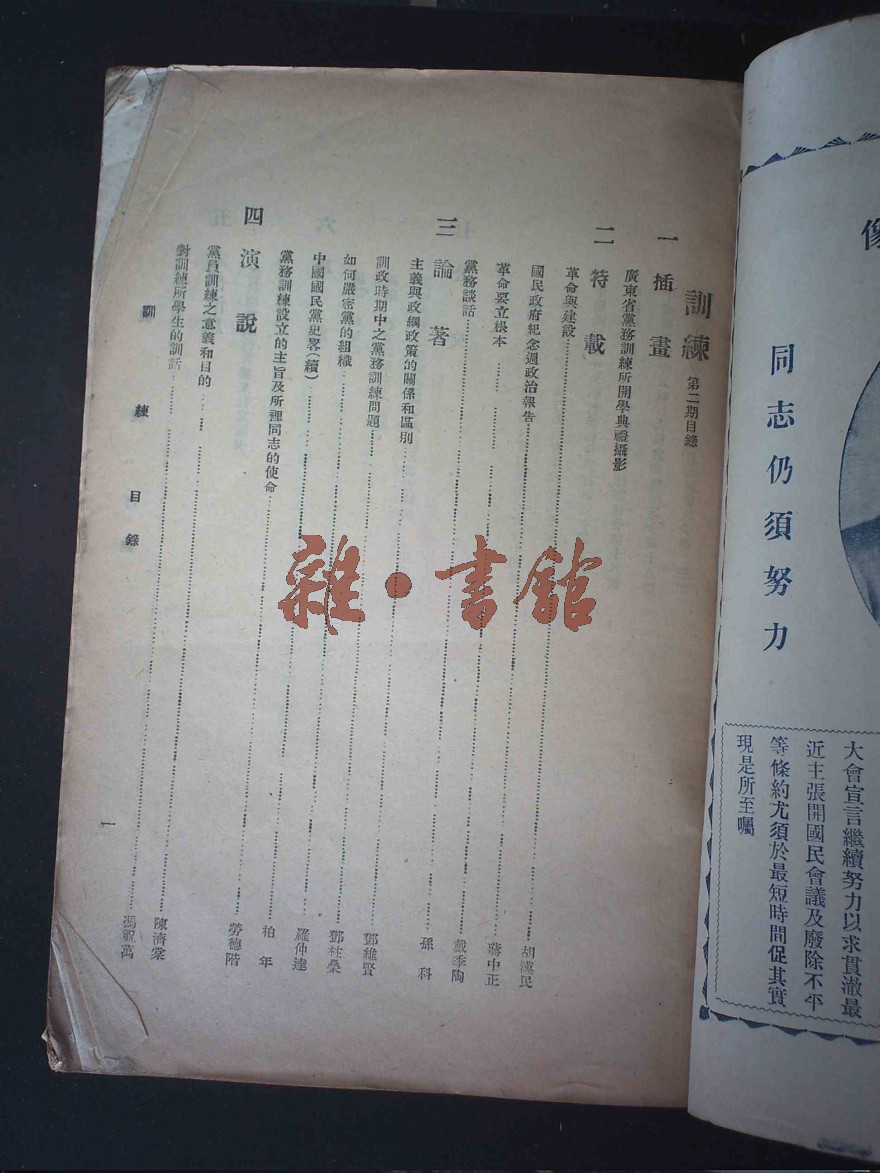 像
同志仍須努力
大會宣言繼續努力以求貫澈最
近主張開國民會議及廢除不平
等條約尤須於最短時間促其實
現是所至囑
訓練 第二期目錄
一 插畫
廣東省黨務訓練所開學典禮攝影
二 特載
革命與建設……胡漢民
國民政府紀念週政治報告……蔣中正
革命要立根本……戴季陶
黨務談話……孫科
三 論著
主義與政綱政策的關係和區別……鄧維賢
訓政時期中之黨務訓練問題……鄧柱燊
如何嚴密黨的組織……羅仲達
中國國民黨史畧(續)……柏年
黨務訓練設立的主旨及所裡同志的使命……勞德階
四 演說
黨員訓練之意義和目的……陳濟棠
對訓練所學生的訓話……馮祝萬
訓練 目錄
一
雜·書館